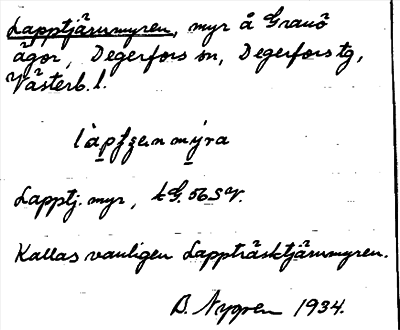 Lapptjärnmyren, myr å Granö
ägor, Degerfors sn, Degerfors tg,
Västerb. l.
Lapptj. myr, kG. 56 SV.
Kallas vanligen Lappträsktjärnmyren.
B. Nygren 1934.